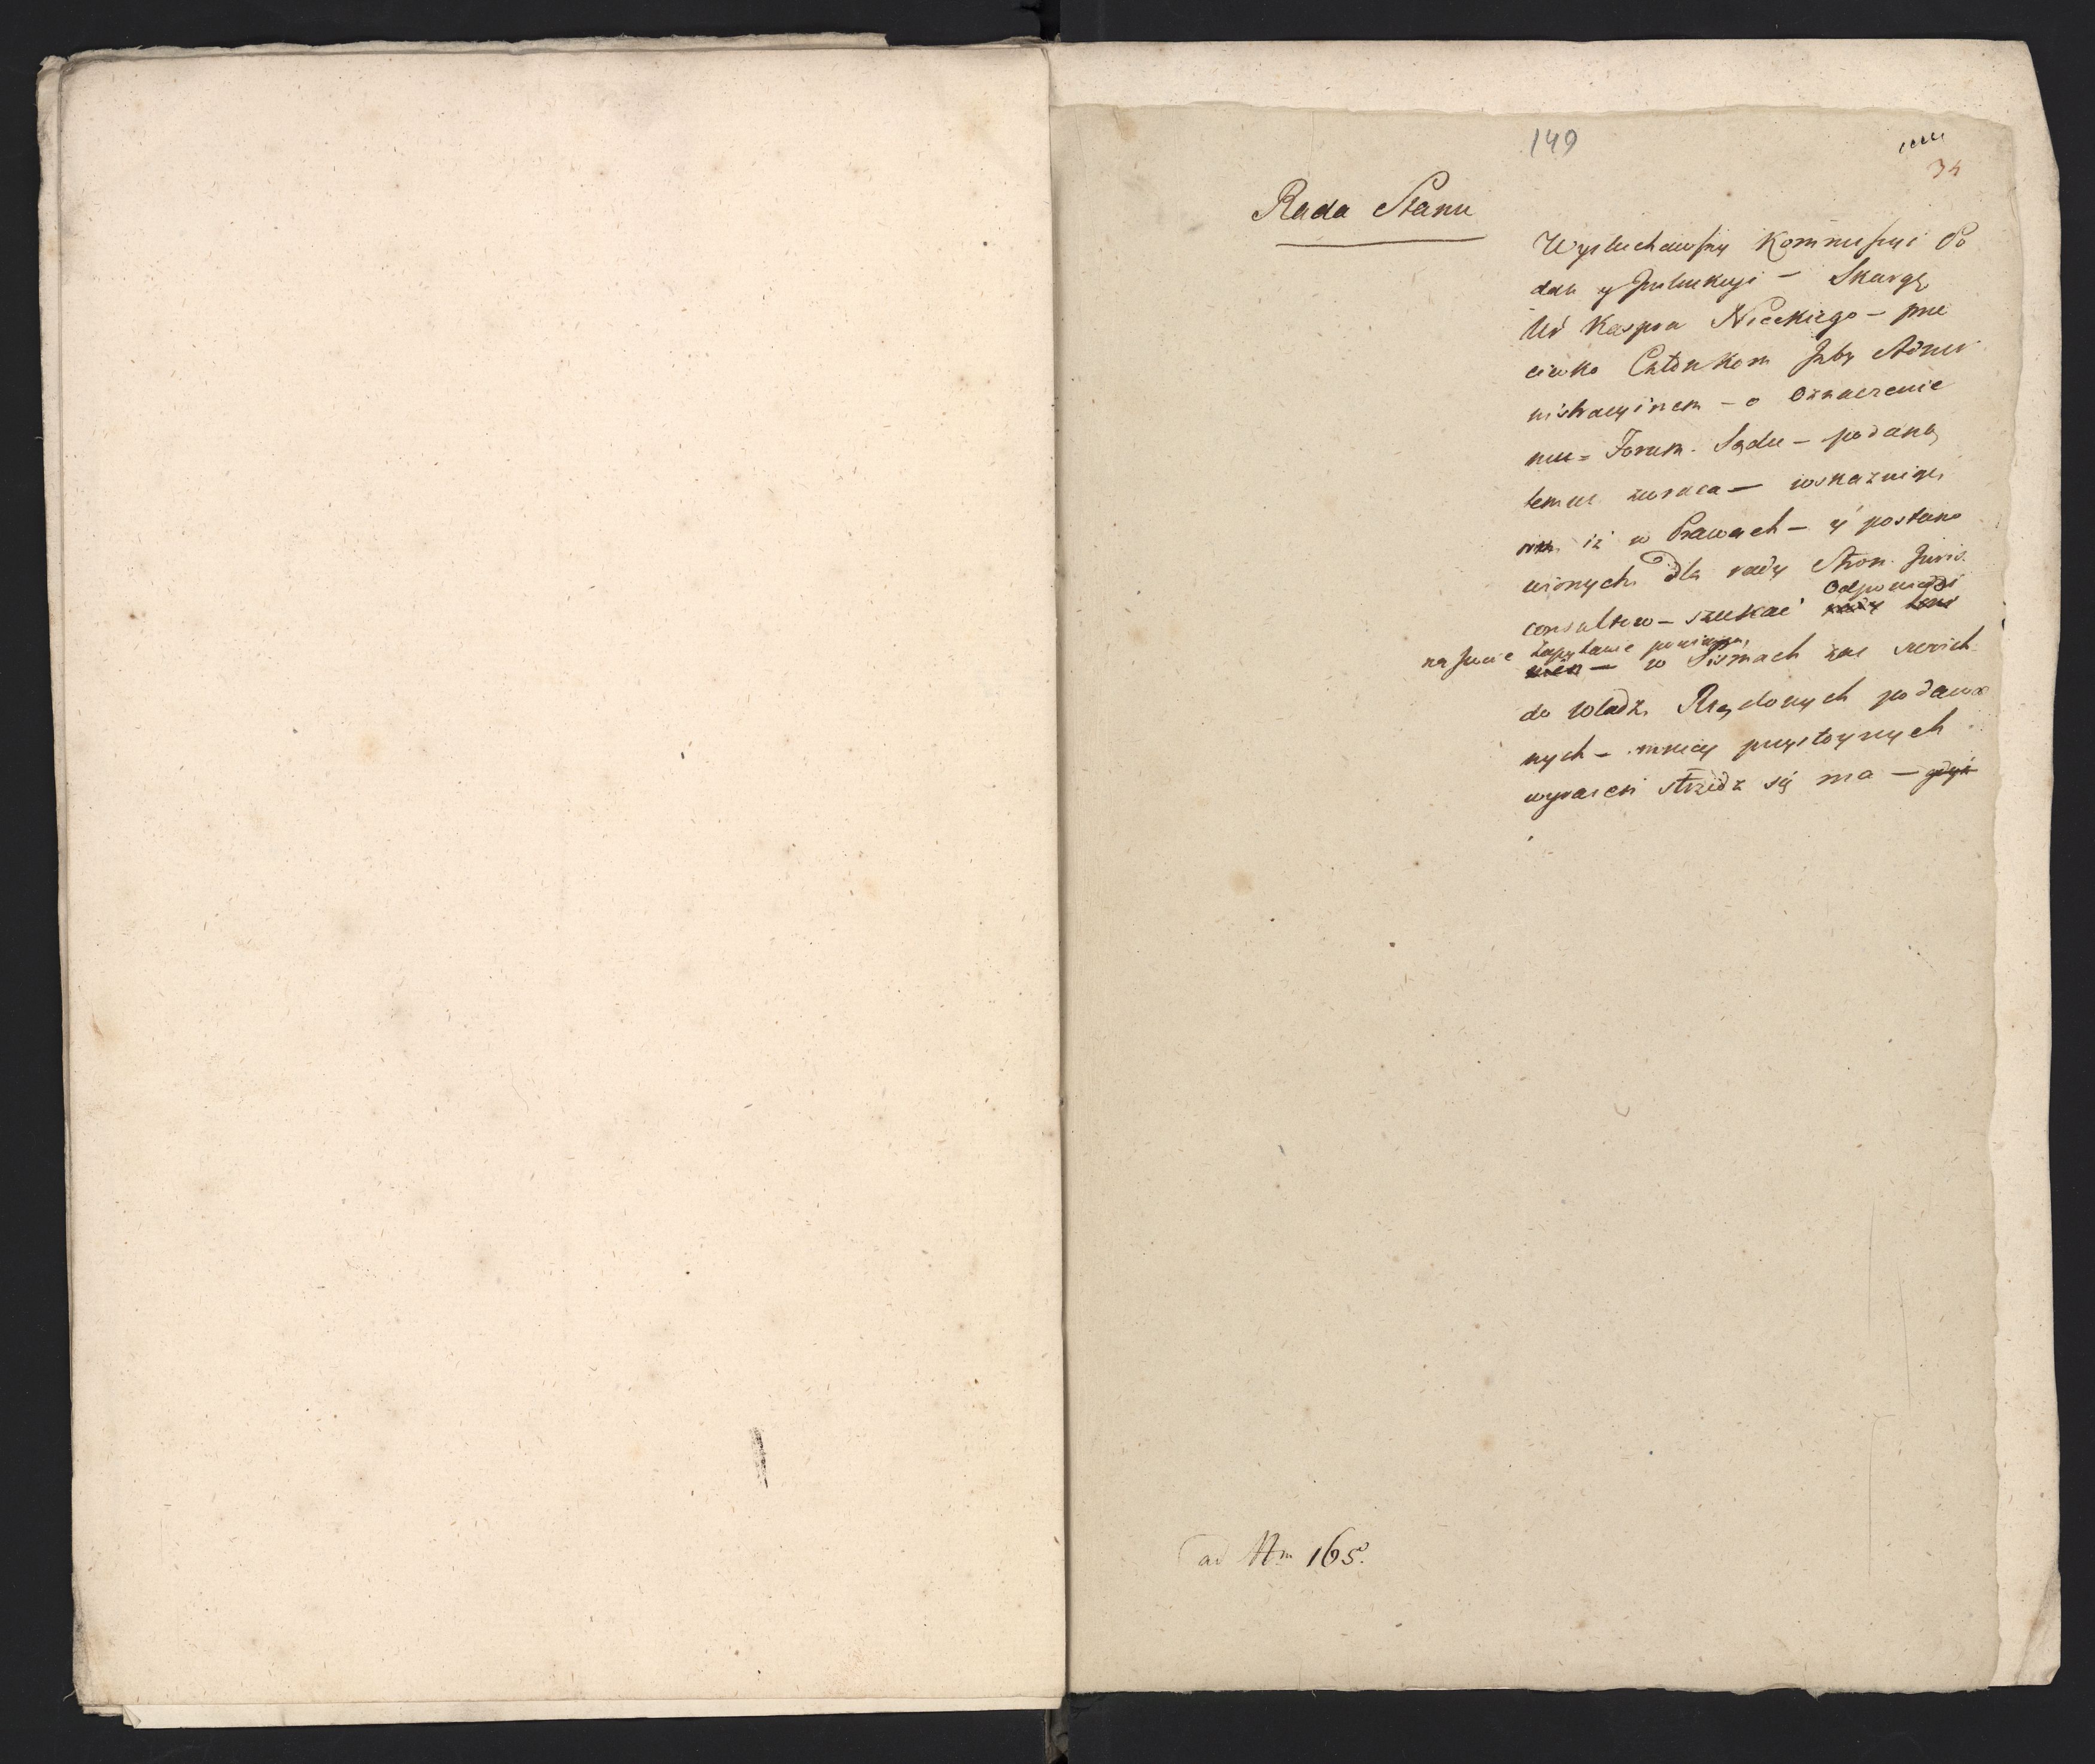 149
34
Rada Stanu
Wysłuchawszy Kommissyi Po
dań y Instrukcyi – Skargę
Ur Kaspra Nieckiego – prze
ciwko Członkom Izby Admi
nistracyinem – o Oznaczenie
mu = Forum Sądu – podaną
temuż zwraca –
iż w Prawach – y postano
wionych dla rady Stron Juris
consultow – szukać Odpowiedzi
na swoie zapytanie powinien,
– w Pismach zaś swoich
do Władz Rządowych podawa
nych – mniey przystoynych
wyrazen strzedz się ma – gdyż
ad Nm 165.